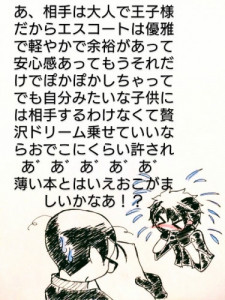 あ、相手は大人で王子様
だからエスコートは優雅
で軽やかで余裕があって
安心感あってもうそれだ
けでぽかぽかしちゃって
でも自分みたいな子供に
は相手するわけなくて贅
沢ドリーム乗せていいな
らおでこにくらい許され
あ゛あ゛あ゛あ゛あ゛
薄い本とはいえおこがま
しいかなあ!?